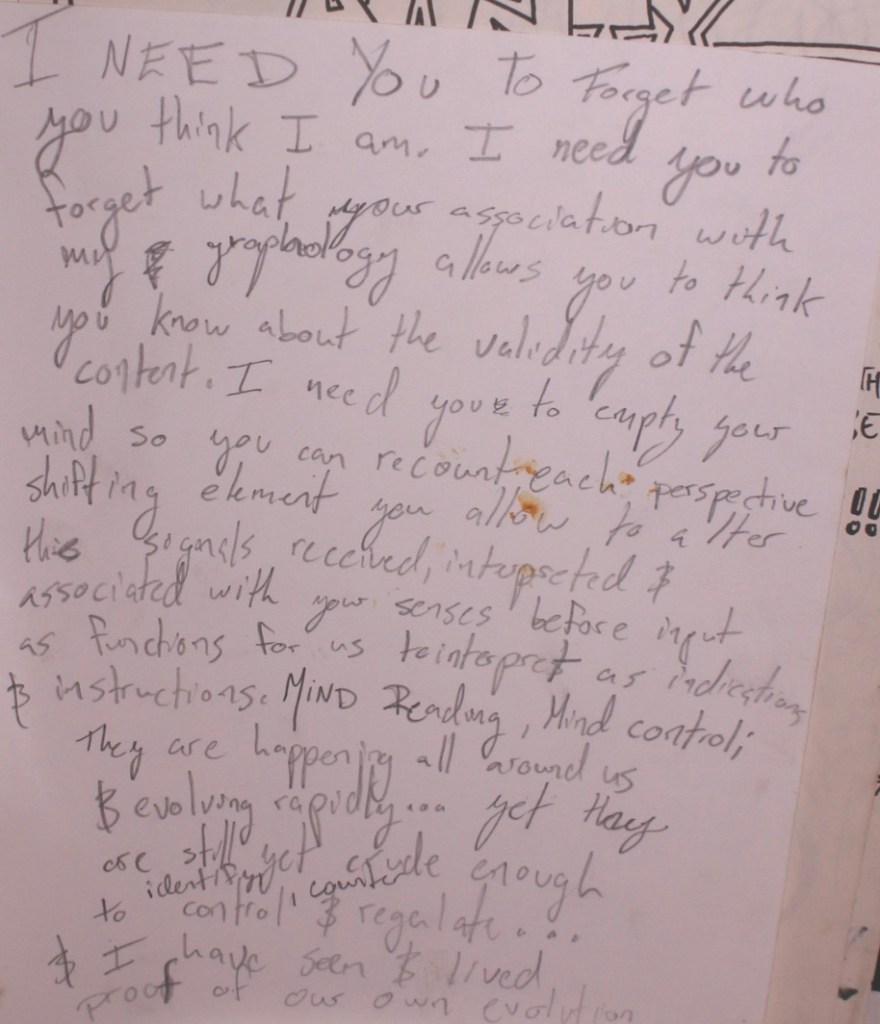 I NEED YOU TO Forget who
you think I am. I need you to
forget what your association with
my graphology allows you to think
you know about the validity of the
content. I need you to empty your
mind so you can recount each perspective
shifting element you allow to alter
this sognals received, interpreted $
associated with your senses before input
as functions for us to interpret as indications
$ instructions. MIND Reading, Mind control;
They are happening all around us
$ evolving rapidly... yet they
are still yet crude enough
identify, counter
to control $ regulate...
$ I have seen $ lived
proof of our own evolution
TH
!!